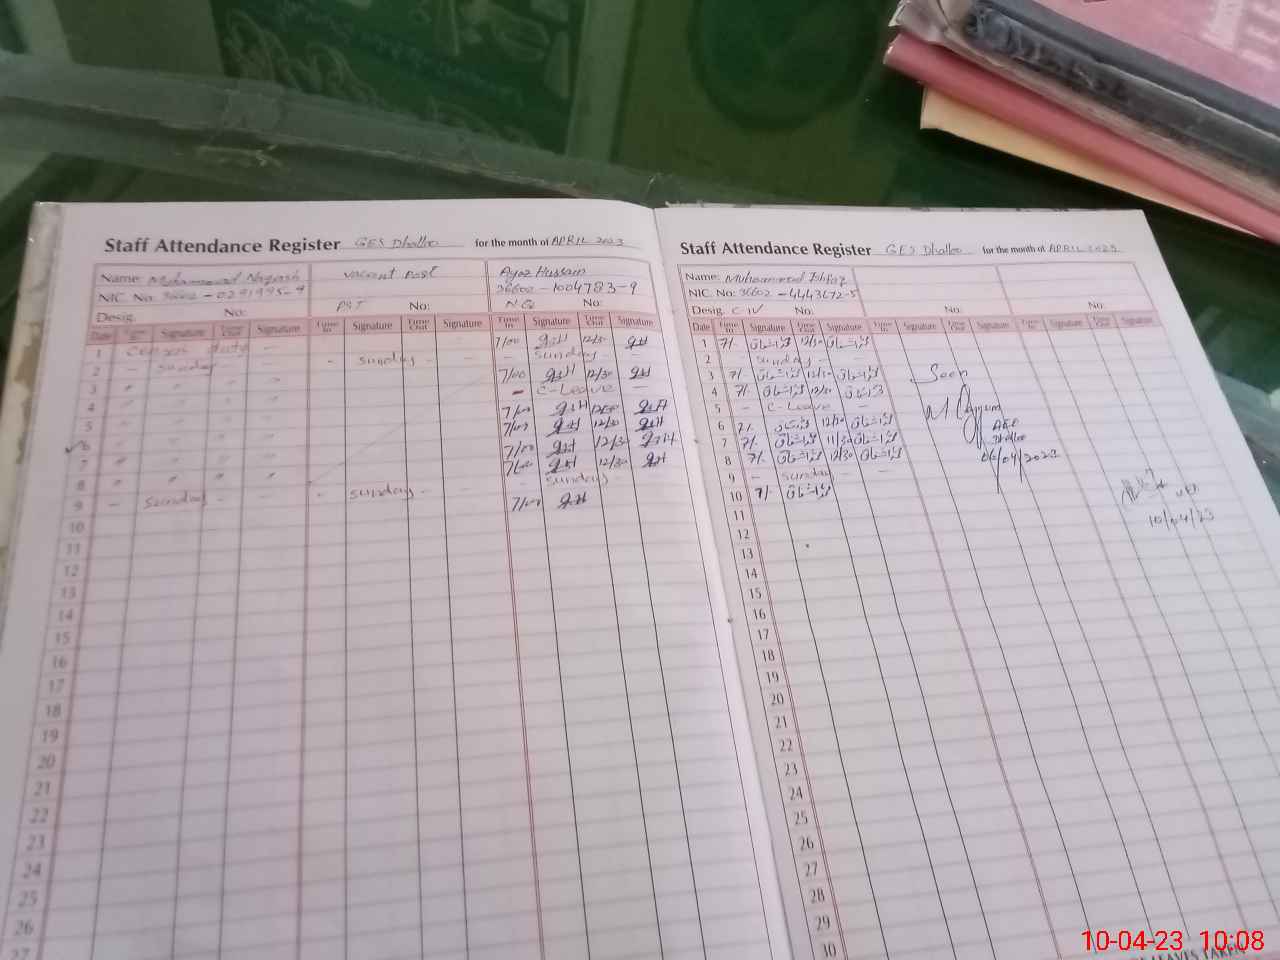 Staff Attendance Register GES Dhalloo for the month of APRIL 2023
Name: Muhammad
vacant post
Ayaz Hussain
NIC. No:
36602-1004783-9
Desig. No:
PST No:
N Q No:
Date Time In Signature Time Out Signature Time In Signature Time Out Signature Time In Signature Time Out Signature
1 Census duty - 7/00 12/30
2 - Sunday - - Sunday - - - Sunday -
3 " " " " 7/00 12/30
4 " " " " - C-Leave -
5 " " " " 7/00
6 " " " " 7/00 12/30
7 " " " " 7/00 12/30
8 " " " " 7/00 12/30
9 - Sunday - - Sunday - - Sunday -
10 7/00
11
12
13
14
15
16
17
18
19
20
21
22
23
24
25
26
27
Staff Attendance Register GES Dhalloo for the month of APRIL 2023
Name: Muhammad Ishfaq
NIC. No: 36602-4443672-5
Desig. C-IV No: No: No:
Date Time In Signature Time Out Signature Time In Signature Time Out Signature Time In Signature Time Out Signature
1 7/. اشفاق 12/30 اشفاق
2 - Sunday - -
3 7/. اشفاق 12/30 اشفاق
4 7/. اشفاق 12/30 اشفاق
5 - C-Leave -
6 7/. اشفاق 12/30 اشفاق
7 7/. اشفاق 11/30 اشفاق
8 7/. اشفاق 12/30 اشفاق
9 - Sunday - -
10 7/. اشفاق
11
12
13
14
15
16
17
18
19
20
21
22
23
24
25
26
27
28
29
30
Seen
M Qayyum
AEO
Dhalloo
06/04/2023
10/04/23
LEAVES TAKEN
10-04-23 10:08